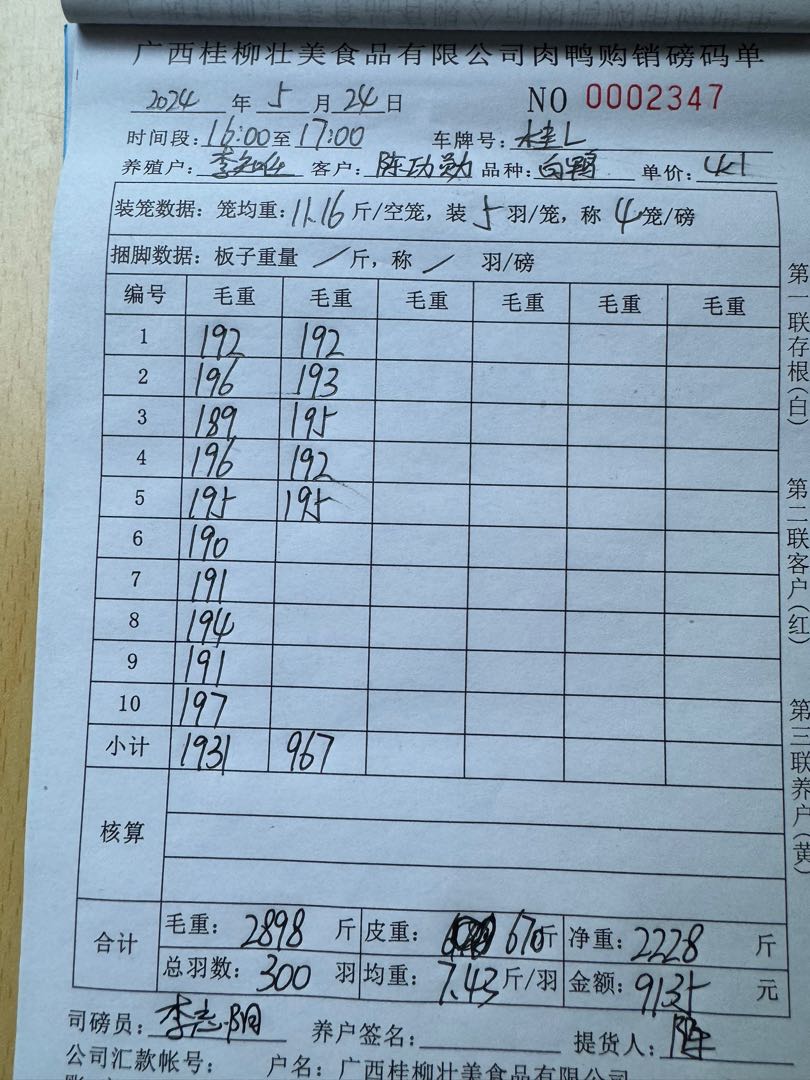 广西桂柳壮美食品有限公司肉鸭购销磅码单
2024 年 5 月 24 日 NO 0002347
时间段:16:00至17:00 车牌号:桂L
养殖户: 客户:陈功勋 品种:白鸭 单价:4.1
装笼数据:笼均重:11.16 斤/空笼,装 5 羽/笼,称 4 笼/磅
捆脚数据:板子重量 / 斤,称 / 羽/磅
编号 毛重 毛重 毛重 毛重 毛重 毛重
1 192 192
2 196 193
3 189 195
4 196 192
5 195 195
6 190
7 191
8 194
9 191
10 197
小计 1931 967
核算
合计 毛重:2898 斤 皮重:670斤 净重:2228 斤
总羽数:300 羽 均重:7.43斤/羽 金额:9135 元
司磅员:李志 养户签名: 提货人:陈
公司汇款帐号: 户名:广西桂柳壮美食品有限公司
第一联存根(白)
第二联客户(红)
第三联养户(黄)